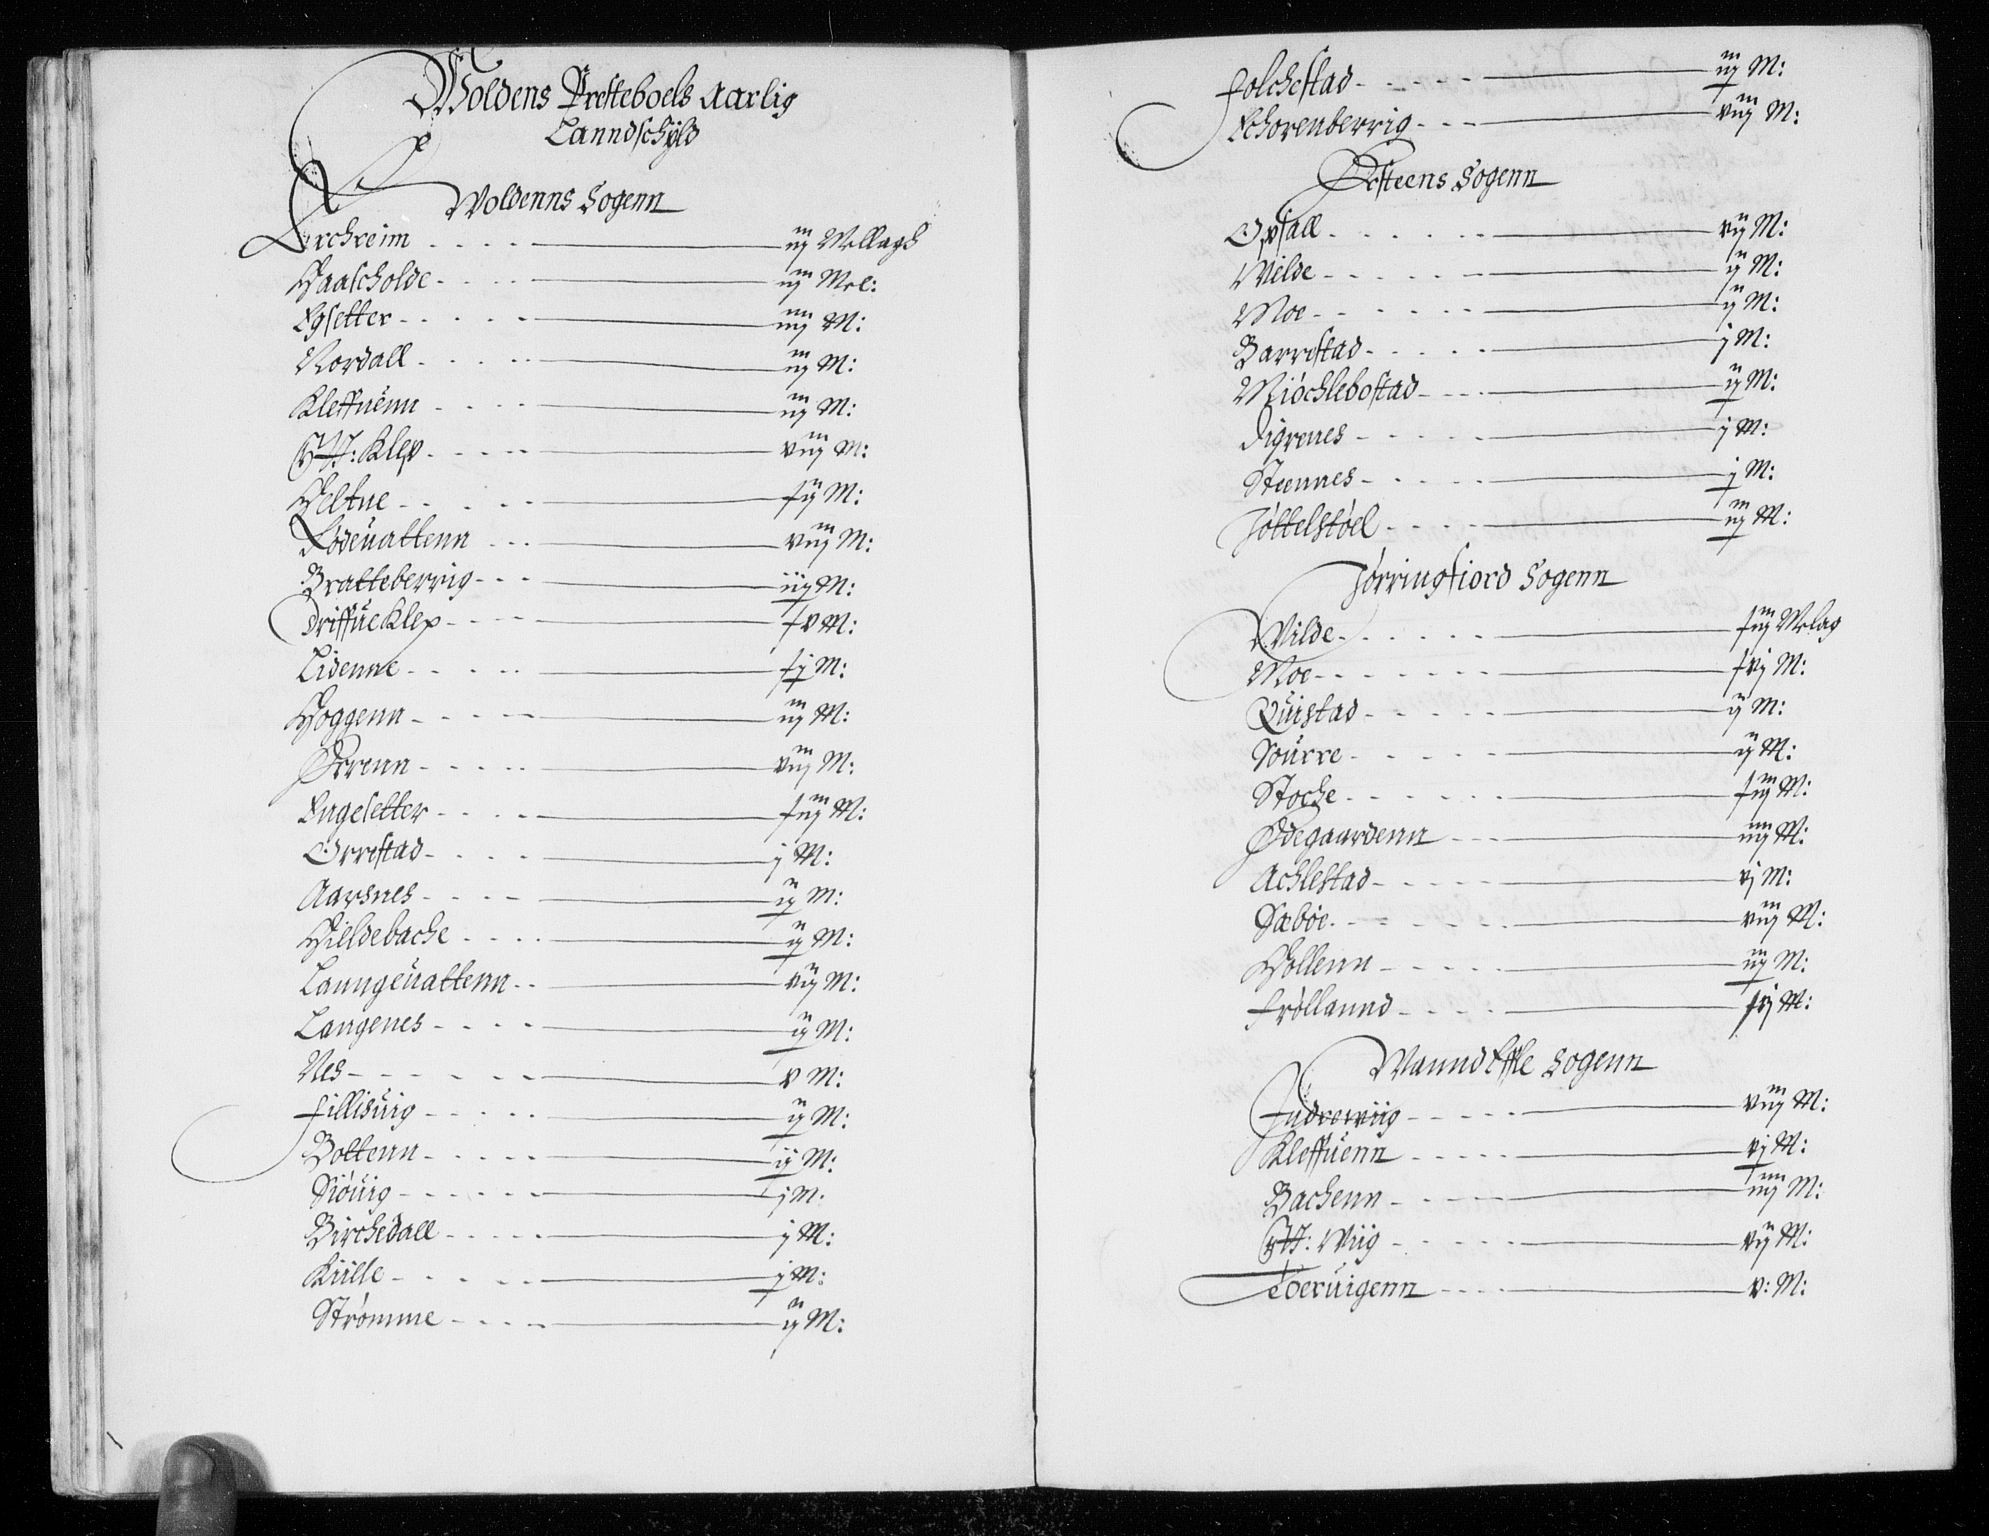 Woldens Presteboels Aarlig
Lanndschÿld
Woldenns Sogenn
Birchreim - - - - - iij Mellagh
Haascholde - - - - iij Mel:
Egsetter - - - - - iiij M:
Nordall - - - - - iij M:
Kleffuenn - - - - iij M:
Ytt: Klep - - - - viij M:
Heltne - - - - - ſij M:
Lodeuattenn - - - viij M:
Bratteberrig - - - iij M:
Driffueklep - - - - ſv M:
Lidenne - - - - - ſj M:
Hoggenn - - - - - iij M:
Ørenn - - - - - viij M:
Engesetter - - - - ſiij M:
Orrestad - - - - j M:
Aarsnes - - - - - ij M:
Hildebache - - - - ij M:
Lanngeuattenn - - vij M:
Langenes - - - - ij M:
Nes - - - - - - v M:
Fillisuig - - - - - ij M:
Bottenn - - - - - ij M:
Siøuig - - - - - - j M.
Birchedall - - - - - j M:
Kiille - - - - - j M:
Strømme - - - - ij M:
Folchestad - - - - - iij M:
Echorenberrig - - - viij M:
Østeens Sogenn
Opsall - - - - - - vij M:
Wilde - - - - - - ij M:
Moe - - - - - - ij M:
Barrestad - - - - - j M:
Miøchlebostad - - - ij M:
Digrenes - - - - - j M:
Steennes - - - - - j M:
Jøttelstøel - - - - iij M:
Jørringfiord Sogenn
Wilde - - - - - - ſiij Melag
Moe - - - - - - - ſvj M:
Quistad - - - - - ij M:
Sourre - - - - - - ij M:
Stoche - - - - - - ſiij M:
Ødegaardenn - - - iiij M:
Achlestad - - - - - vj M:
Sæbøe - - - - - - viij M:
Hollenn - - - - - iij M:
Frøllannd - - - - ſvj M:
Wanndelffs Sogenn
Indrewiig - - - - - viij M:
Kleffuenn - - - - - vj M:
Bachenn - - - - - iiij M:
Ytt: Wiig - - - - - vij M:
Loeruigenn - - - - v: M: